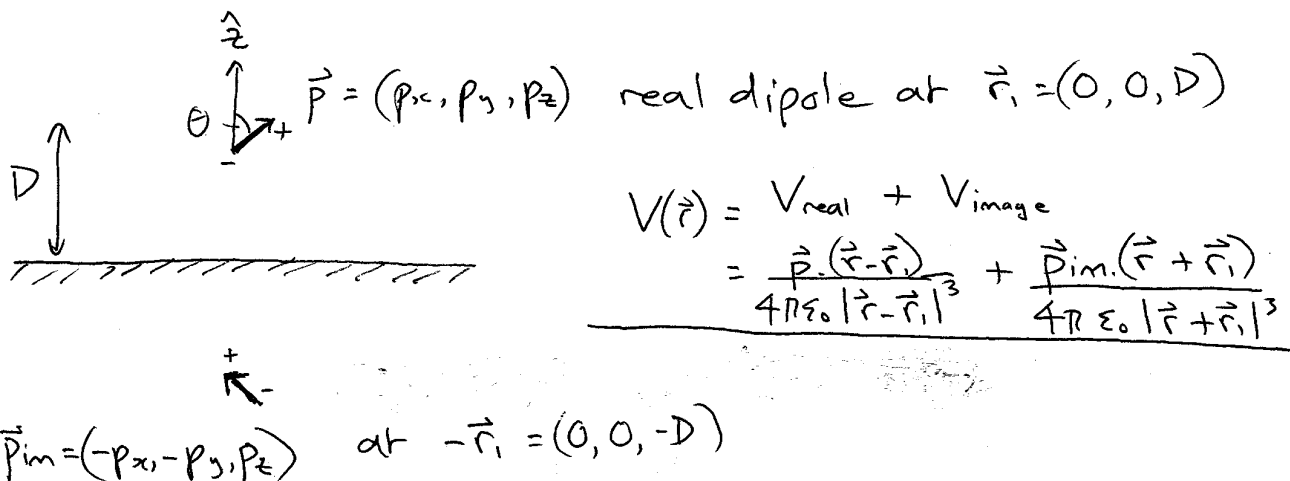 ẑ
θ
+
-
p⃗ = (px, py, pz) real dipole at r⃗₁ = (0, 0, D)
D
V(r⃗) = Vreal + Vimage
= p⃗.(r⃗-r⃗₁) / 4πε₀|r⃗-r⃗₁|³ + p⃗im.(r⃗+r⃗₁) / 4πε₀|r⃗+r⃗₁|³
+
-
p⃗im = (-px, -py, pz) at -r⃗₁ = (0, 0, -D)